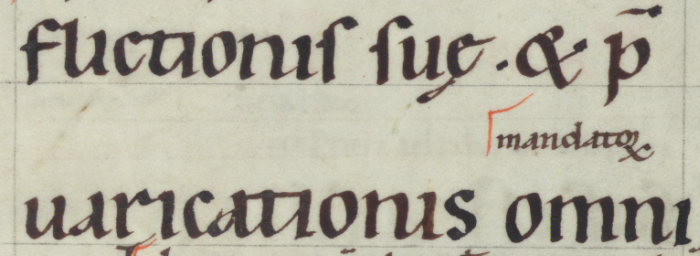 flictionis suę . & p̄
mandatoꝝ
uaricationis omni